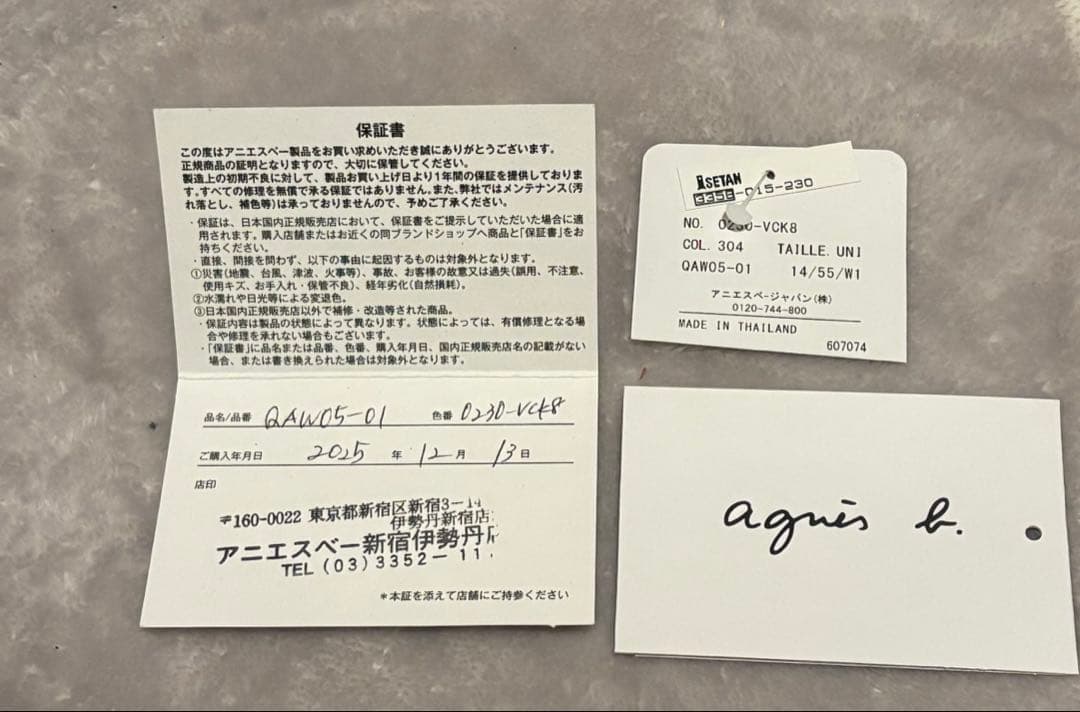 保証書
この度はアニエスベー製品をお買い求めいただき誠にありがとうございます。
正規商品の証明となりますので、大切に保管してください。
製造上の初期不良に対して、製品お買い上げ日より1年間の保証を提供しておりま
す。すべての修理を無償で承る保証ではありません。また、弊社ではメンテナンス(汚
れ落とし、補色等)は承っておりませんので、予めご了承ください。
・保証は、日本国内正規販売店において、保証書をご提示していただいた場合に適
用されます。購入店舗またはお近くの同ブランドショップへ商品と「保証書」をお
持ちください。
・直接、間接を問わず、以下の事由に起因するものは対象外となります。
①災害(地震、台風、津波、火事等)、事故、お客様の故意又は過失(誤用、不注意、
使用キズ、お手入れ・保管不良)、経年劣化(自然損耗)。
②水濡れや日光等による変退色。
③日本国内正規販売店以外で補修・改造等された商品。
・保証内容は製品の状態によって異なります。状態によっては、有償修理となる場
合や修理を承れない場合もございます。
・「保証書」に品名または品番、色番、購入年月日、国内正規販売店名の記載がない
場合、または書き換えられた場合は対象外となります。
品名/品番 QAW05-01 色番 0230-VCK8
ご購入年月日 2025 年 12 月 13 日
店印
〒160-0022 東京都新宿区新宿3-14
伊勢丹新宿店
アニエスベー新宿伊勢丹
TEL (03) 3352-11
*本証を添えて店舗にご持参ください
ISETAN
-015-230
NO. 0230-VCK8
COL. 304 TAILLE. UNI
QAW05-01 14/55/W1
アニエスベージャパン(株)
0120-744-800
MADE IN THAILAND
607074
agnès b.